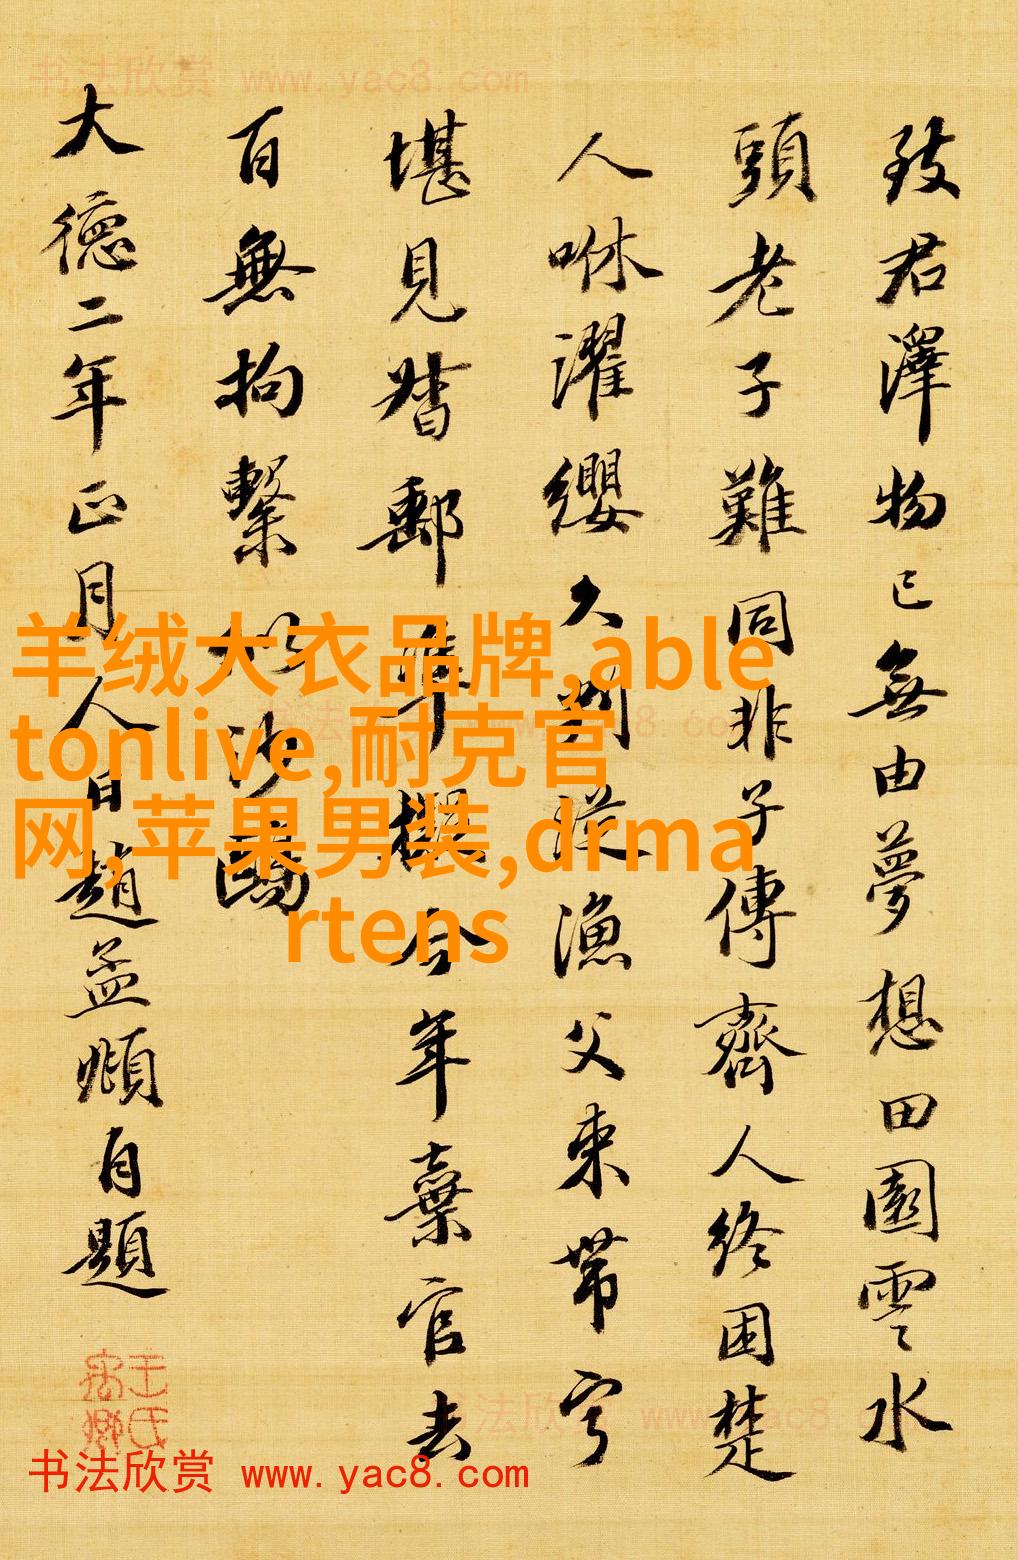 致君澤物已無由夢想田園雲水
頭老子難同非子傳齊人終困楚
人咻濯纓久判從漁父束帶寧
堪見督郵準擬今年棄官去
百無拘繫似沙鷗
大德二年正月人日趙孟頫自題
羊绒大衣品牌,able
tonlive,耐克官
网,苹果男装,drma
rtens
书法欣赏 www.yac8.com
书法欣赏 www.yac8.com
书法欣赏 www.yac8.com
书法欣赏 www.yac8.com